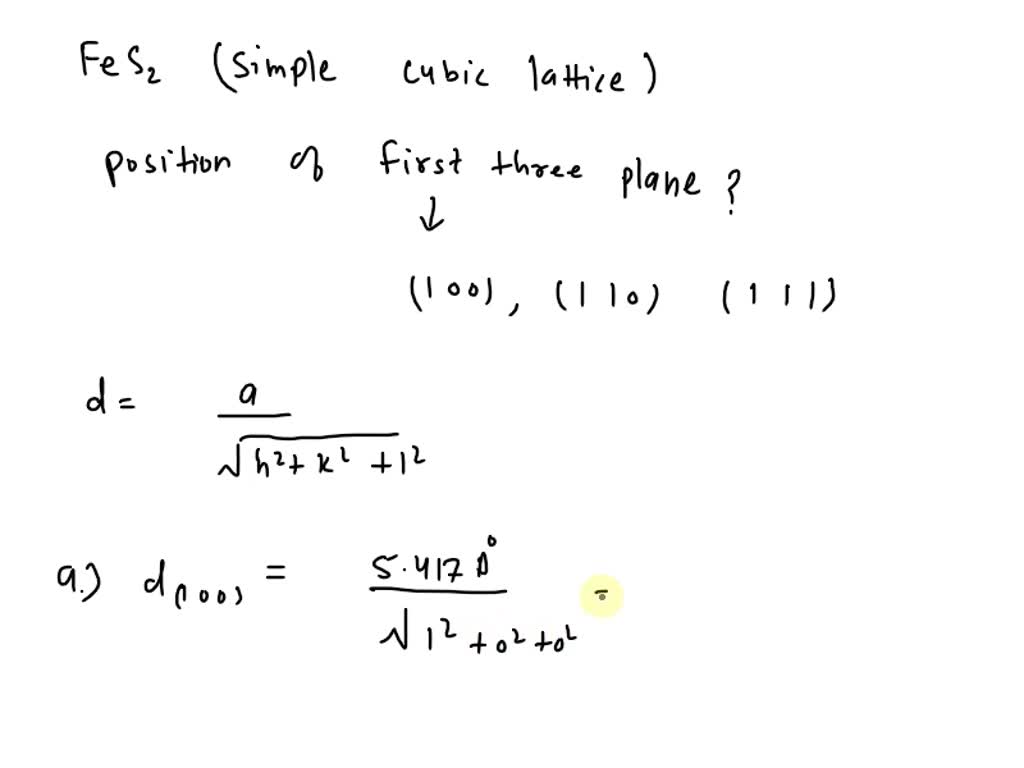 FeS₂ (simple cubic lattice)
position of first three plane?
↓
(100), (110) (111)
d = a / √h²+k²+l²
a.) d(100) = 5.417 A° / √1²+0²+0² =